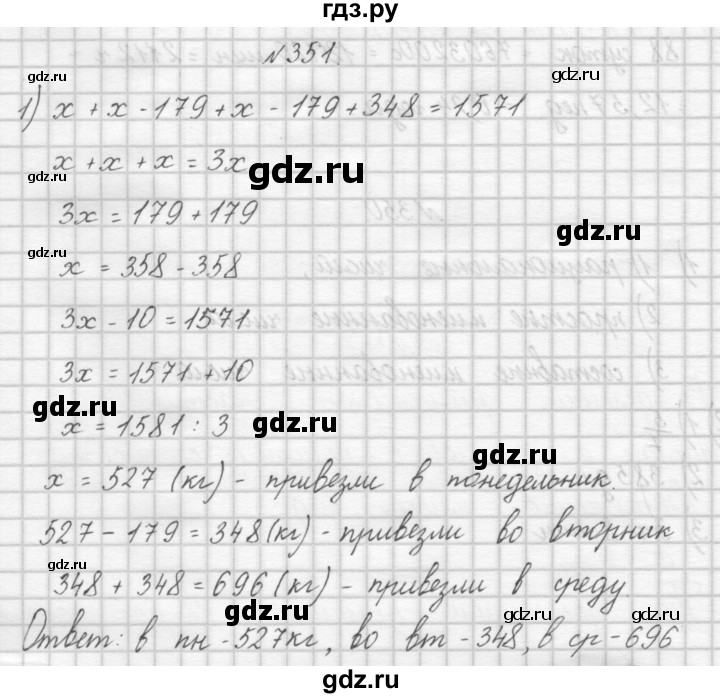 гдз.ру
№351.
1) x + x - 179 + x - 179 + 348 = 1571
x + x + x = 3x
3x = 179 + 179
x = 358 - 358
3x - 10 = 1571
3x = 1571 + 10
x = 1581 : 3
x = 527 (кг) - привезли в понедельник.
527 - 179 = 348 (кг) - привезли во вторник
348 + 348 = 696 (кг) - привезли в среду
Ответ: в пн - 527кг, во вт - 348, в ср - 696
gdz.ru
gdz.ru
gdz.ru
gdz.ru
gdz.ru
gdz.ru
gdz.ru
gdz.ru
gdz.ru
gdz.ru
gdz.ru
gdz.ru
gdz.ru
gdz.ru